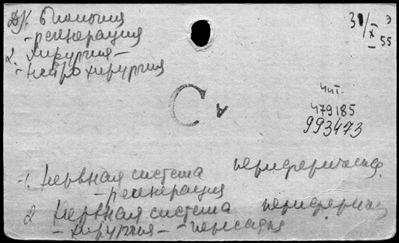 ДК Биология
- регенерация
2. хирургия -
- нейрохирургия
31/X 55
Э
С А
чит.
479185
993473
1. Нервная система периферическая
- регенерация
2. Нервная система периферич.
- хирургия - пересадка